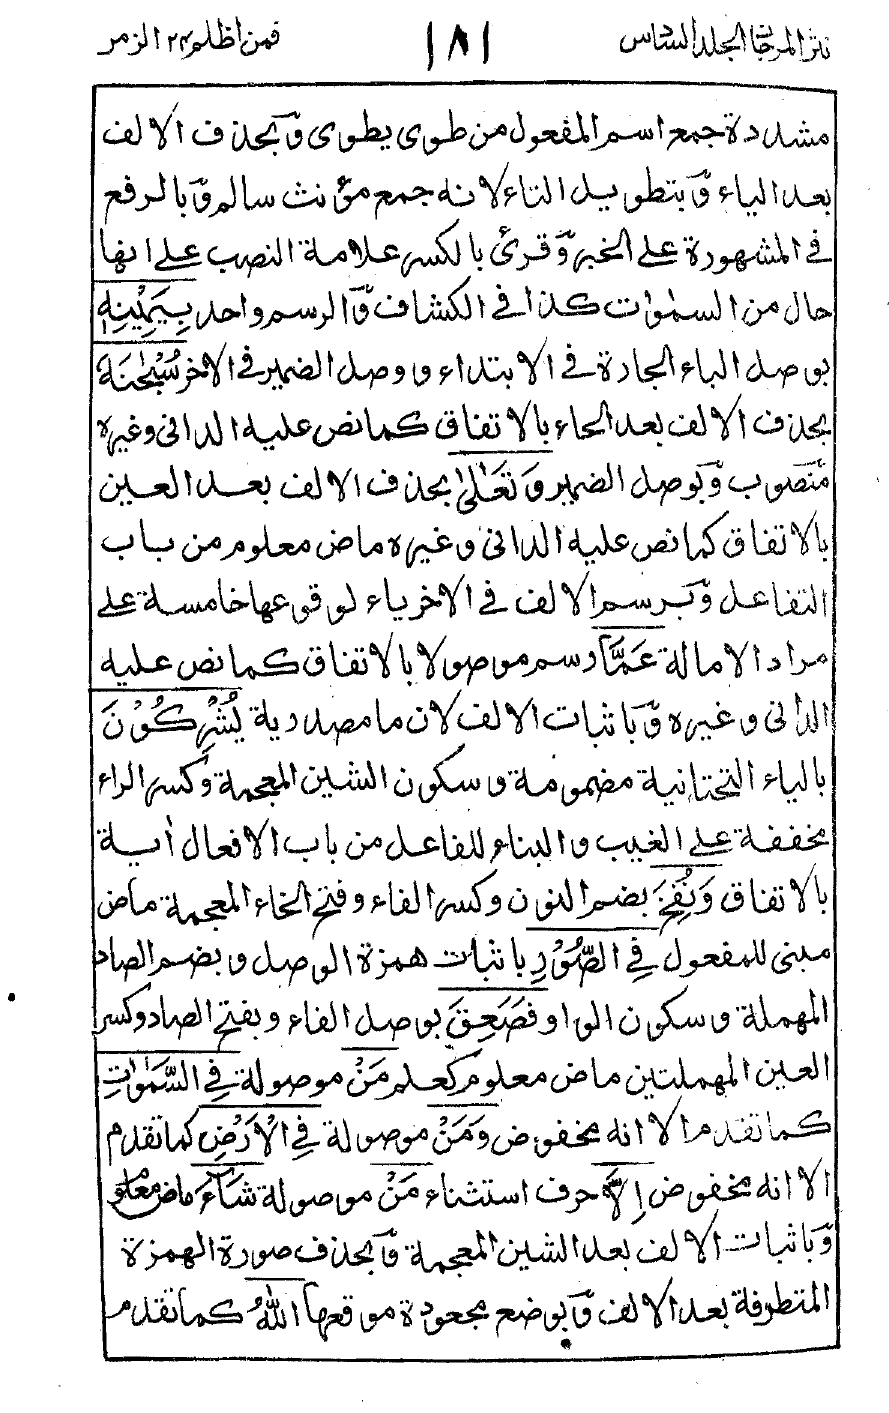 نثر المرجان الجلد السادس ١٨١ فمن اظلم ٢٤ الزمر
مشددة جمع اسم المفعول من طوى يطوى وبحذف الالف
بعد الياء وبتطويل التاء لانه جمع مؤنث سالم وبالرفع
فى المشهورة على الخبر وقرئ بالكسر علامة النصب على انها
حال من السمٰوات كذا فى الكشاف والرسم واحد بِيَمِيْنِهٖ
بوصل الباء الجارة فى الابتداء ووصل الضمير فى الاخر سُبْحٰنَهٗ
بحذف الالف بعد الحاء بالاتفاق كما نص عليه الدانى وغيره
منصوب وبوصل الضمير وَتَعٰلىٰ بحذف الالف بعد العين
بالاتفاق كما نص عليه الدانى وغيره ماض معلوم من باب
التفاعل وبرسم الالف فى الاخر ياء لوقوعها خامسة على
مراد الامالة عَمَّا رسم موصولا بالاتفاق كما نص عليه
الدانى وغيره وباثبات الالف لان ما مصدرية يُشْرِكُوْنَ
بالياء التحتانية مضمومة وسكون الشين المعجمة وكسر الراء
مخففة على الغيب والبناء للفاعل من باب الافعال اٰية
بالاتفاق وَنُفِخَ بضم النون وكسر الفاء وفتح الخاء المعجمة ماض
مبنى للمفعول فِي الصُّوْرِ باثبات همزة الوصل وبضم الصاد
المهملة وسكون الواو فَصَعِقَ بوصل الفاء وبفتح الصاد وكسر
العين المهملتين ماض معلوم كعلم مَنْ موصولة فِي السَّمٰوٰتِ
كما تقدم الا انه مخفوض وَمَنْ موصولة فِي الْاَرْضِ كما تقدم
الا انه مخفوض اِلَّا حرف استثناء مَنْ موصولة شَآءَ ماض معلوم
وباثبات الالف بعد الشين المعجمة وبحذف صورة الهمزة
المتطرفة بعد الالف وبوضع مجعودة موقعها اللّٰهُ كما تقدم